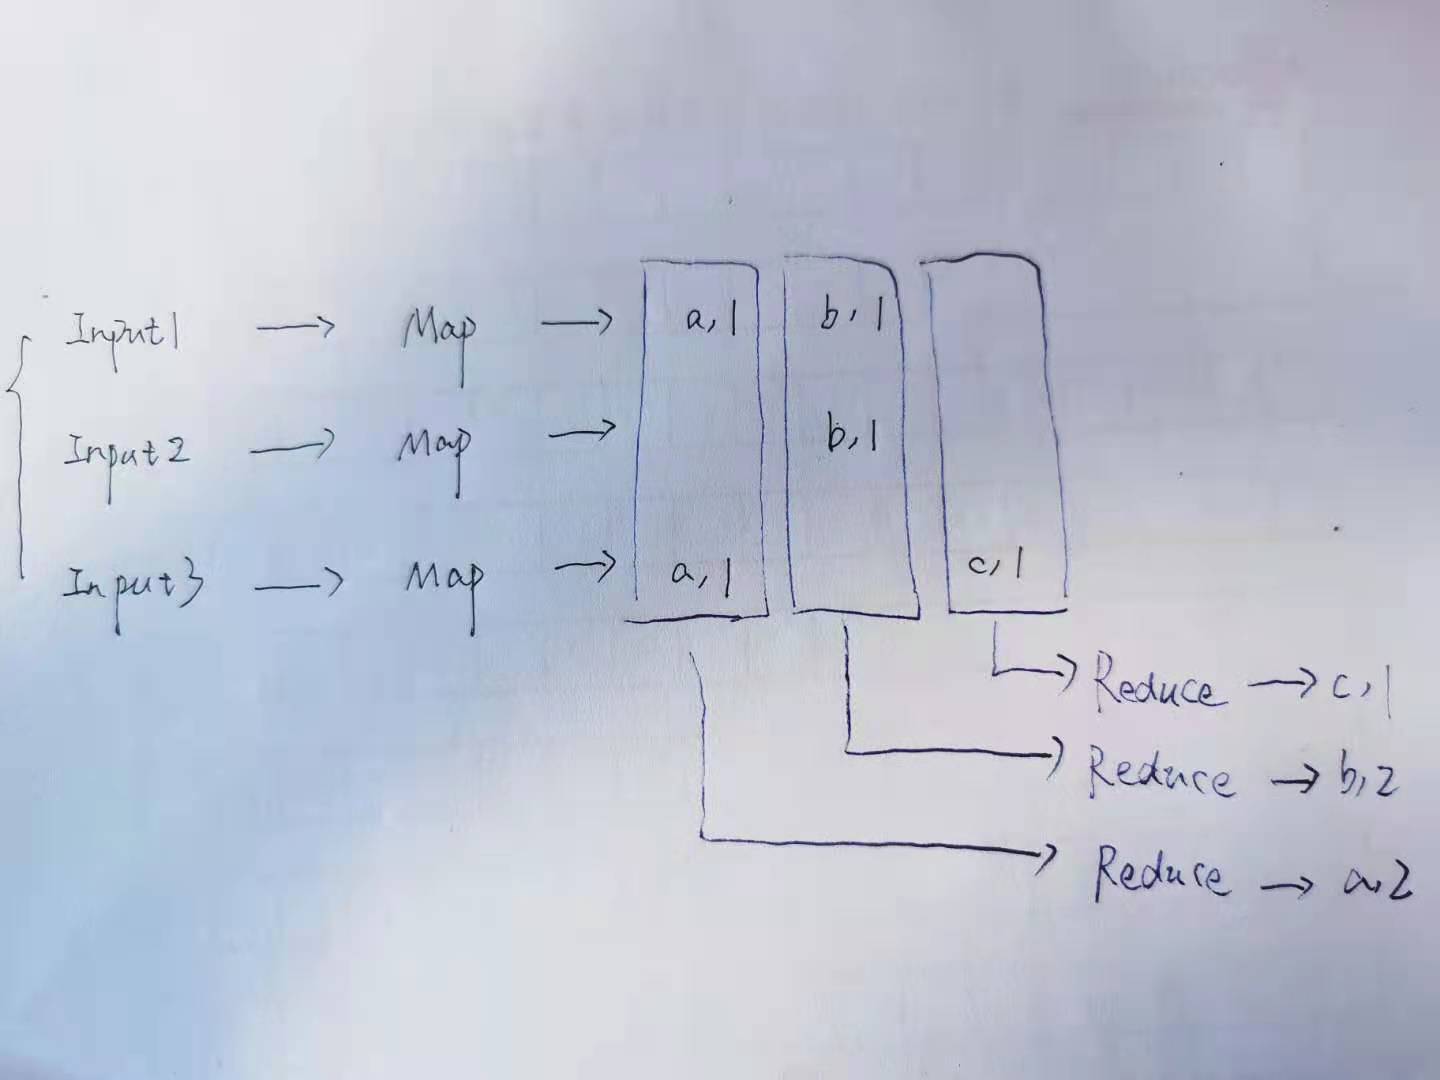 Input1 Map a,1 b,1
Input2 Map b,1
Input3 Map a,1 c,1
Reduce c,1
Reduce b,2
Reduce a,2